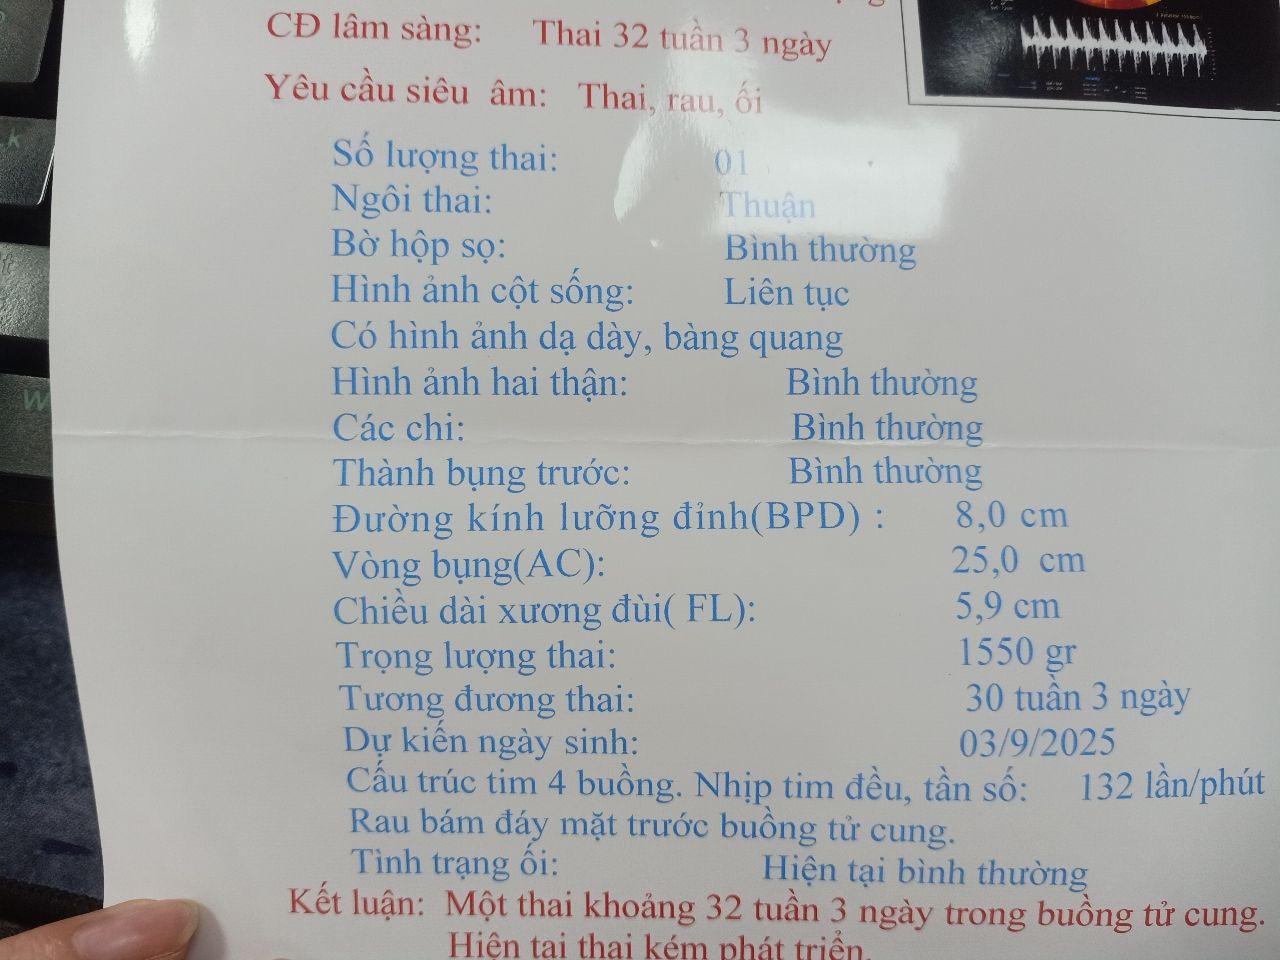 CĐ lâm sàng: Thai 32 tuần 3 ngày
Yêu cầu siêu âm: Thai, rau, ối
Số lượng thai: 01
Ngôi thai: Thuận
Bờ hộp sọ: Bình thường
Hình ảnh cột sống: Liên tục
Có hình ảnh dạ dày, bàng quang
Hình ảnh hai thận: Bình thường
Các chi: Bình thường
Thành bụng trước: Bình thường
Đường kính lưỡng đỉnh(BPD) : 8,0 cm
Vòng bụng(AC): 25,0 cm
Chiều dài xương đùi( FL): 5,9 cm
Trọng lượng thai: 1550 gr
Tương đương thai: 30 tuần 3 ngày
Dự kiến ngày sinh: 03/9/2025
Cấu trúc tim 4 buồng. Nhịp tim đều, tần số: 132 lần/phút
Rau bám đáy mặt trước buồng tử cung.
Tình trạng ối: Hiện tại bình thường
Kết luận: Một thai khoảng 32 tuần 3 ngày trong buồng tử cung.
Hiện tại thai kém phát triển.